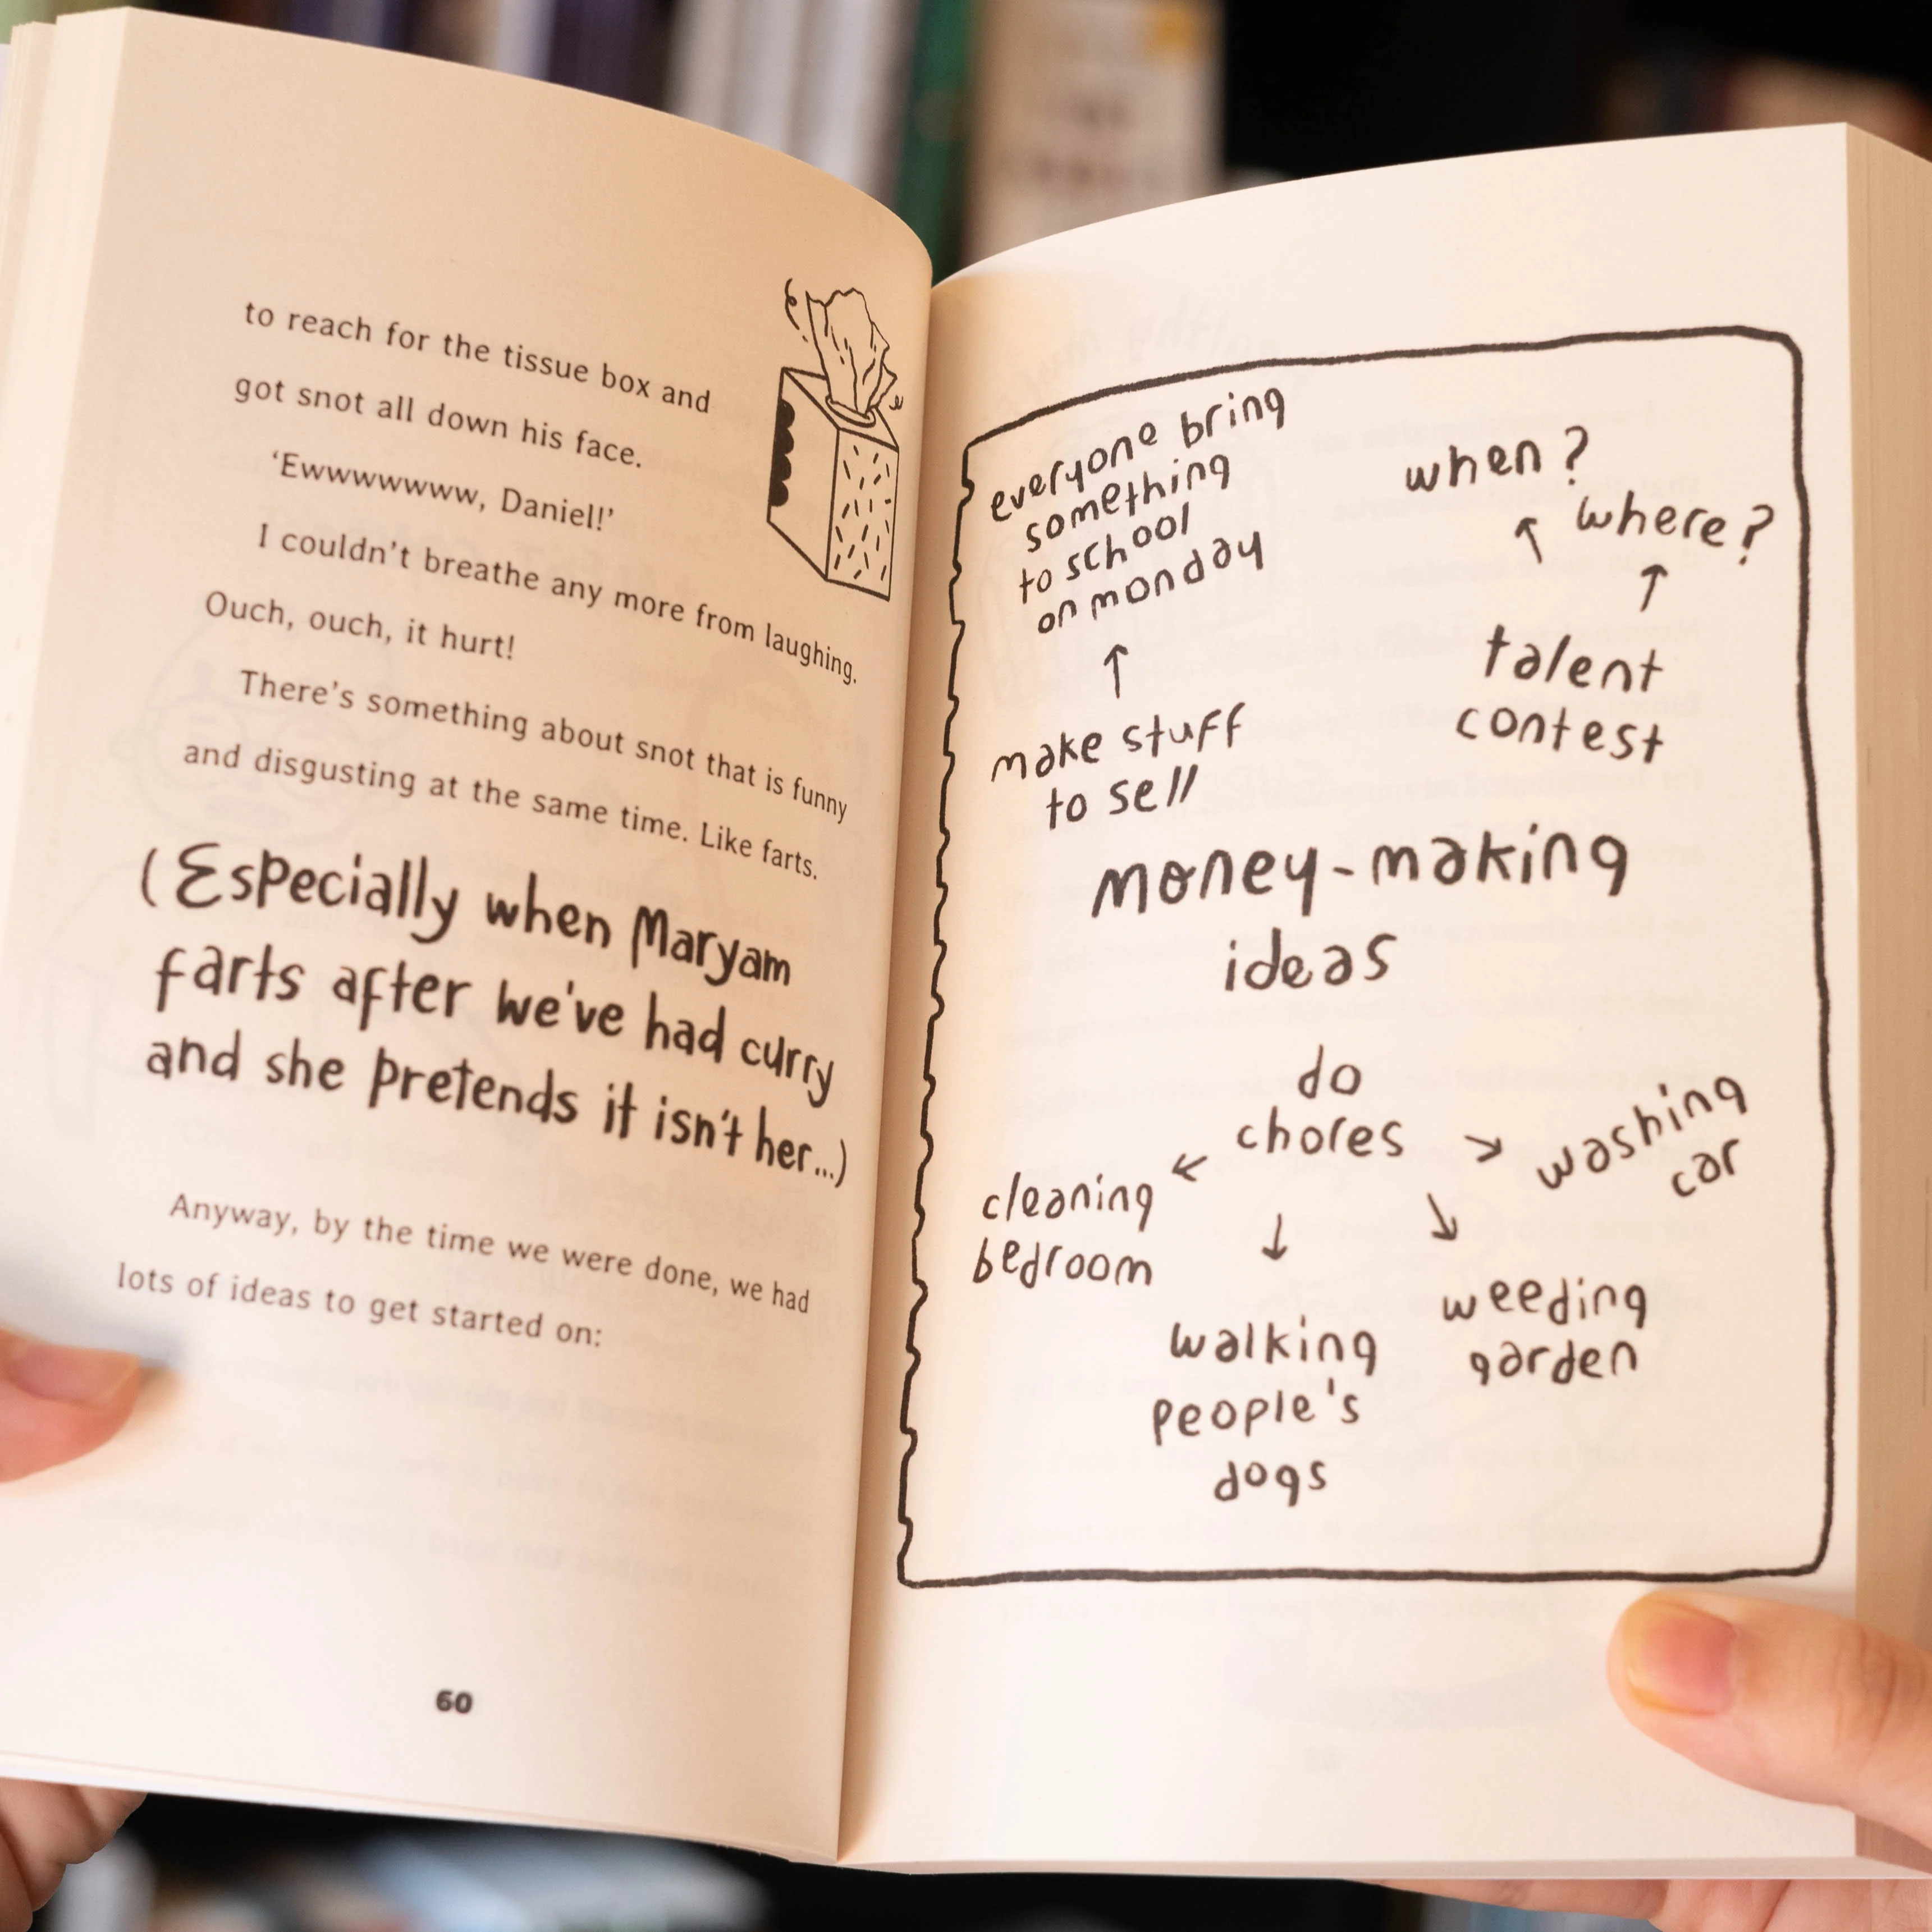 to reach for the tissue box and
got snot all down his face.
‘Ewwwwwww, Daniel!’
I couldn’t breathe any more from laughing.
Ouch, ouch, it hurt!
There’s something about snot that is funny
and disgusting at the same time. Like farts.
(Especially when Maryam
farts after we've had curry
and she pretends it isn't her...)
Anyway, by the time we were done, we had
lots of ideas to get started on:
60
everyone bring
something
to school
on monday
↑
make stuff
to sell
when?
where?
↖
↑
talent
contest
money-making
ideas
do
chores
← ↓ ↘ →
cleaning
bedroom
walking
people's
dogs
weeding
garden
washing
car